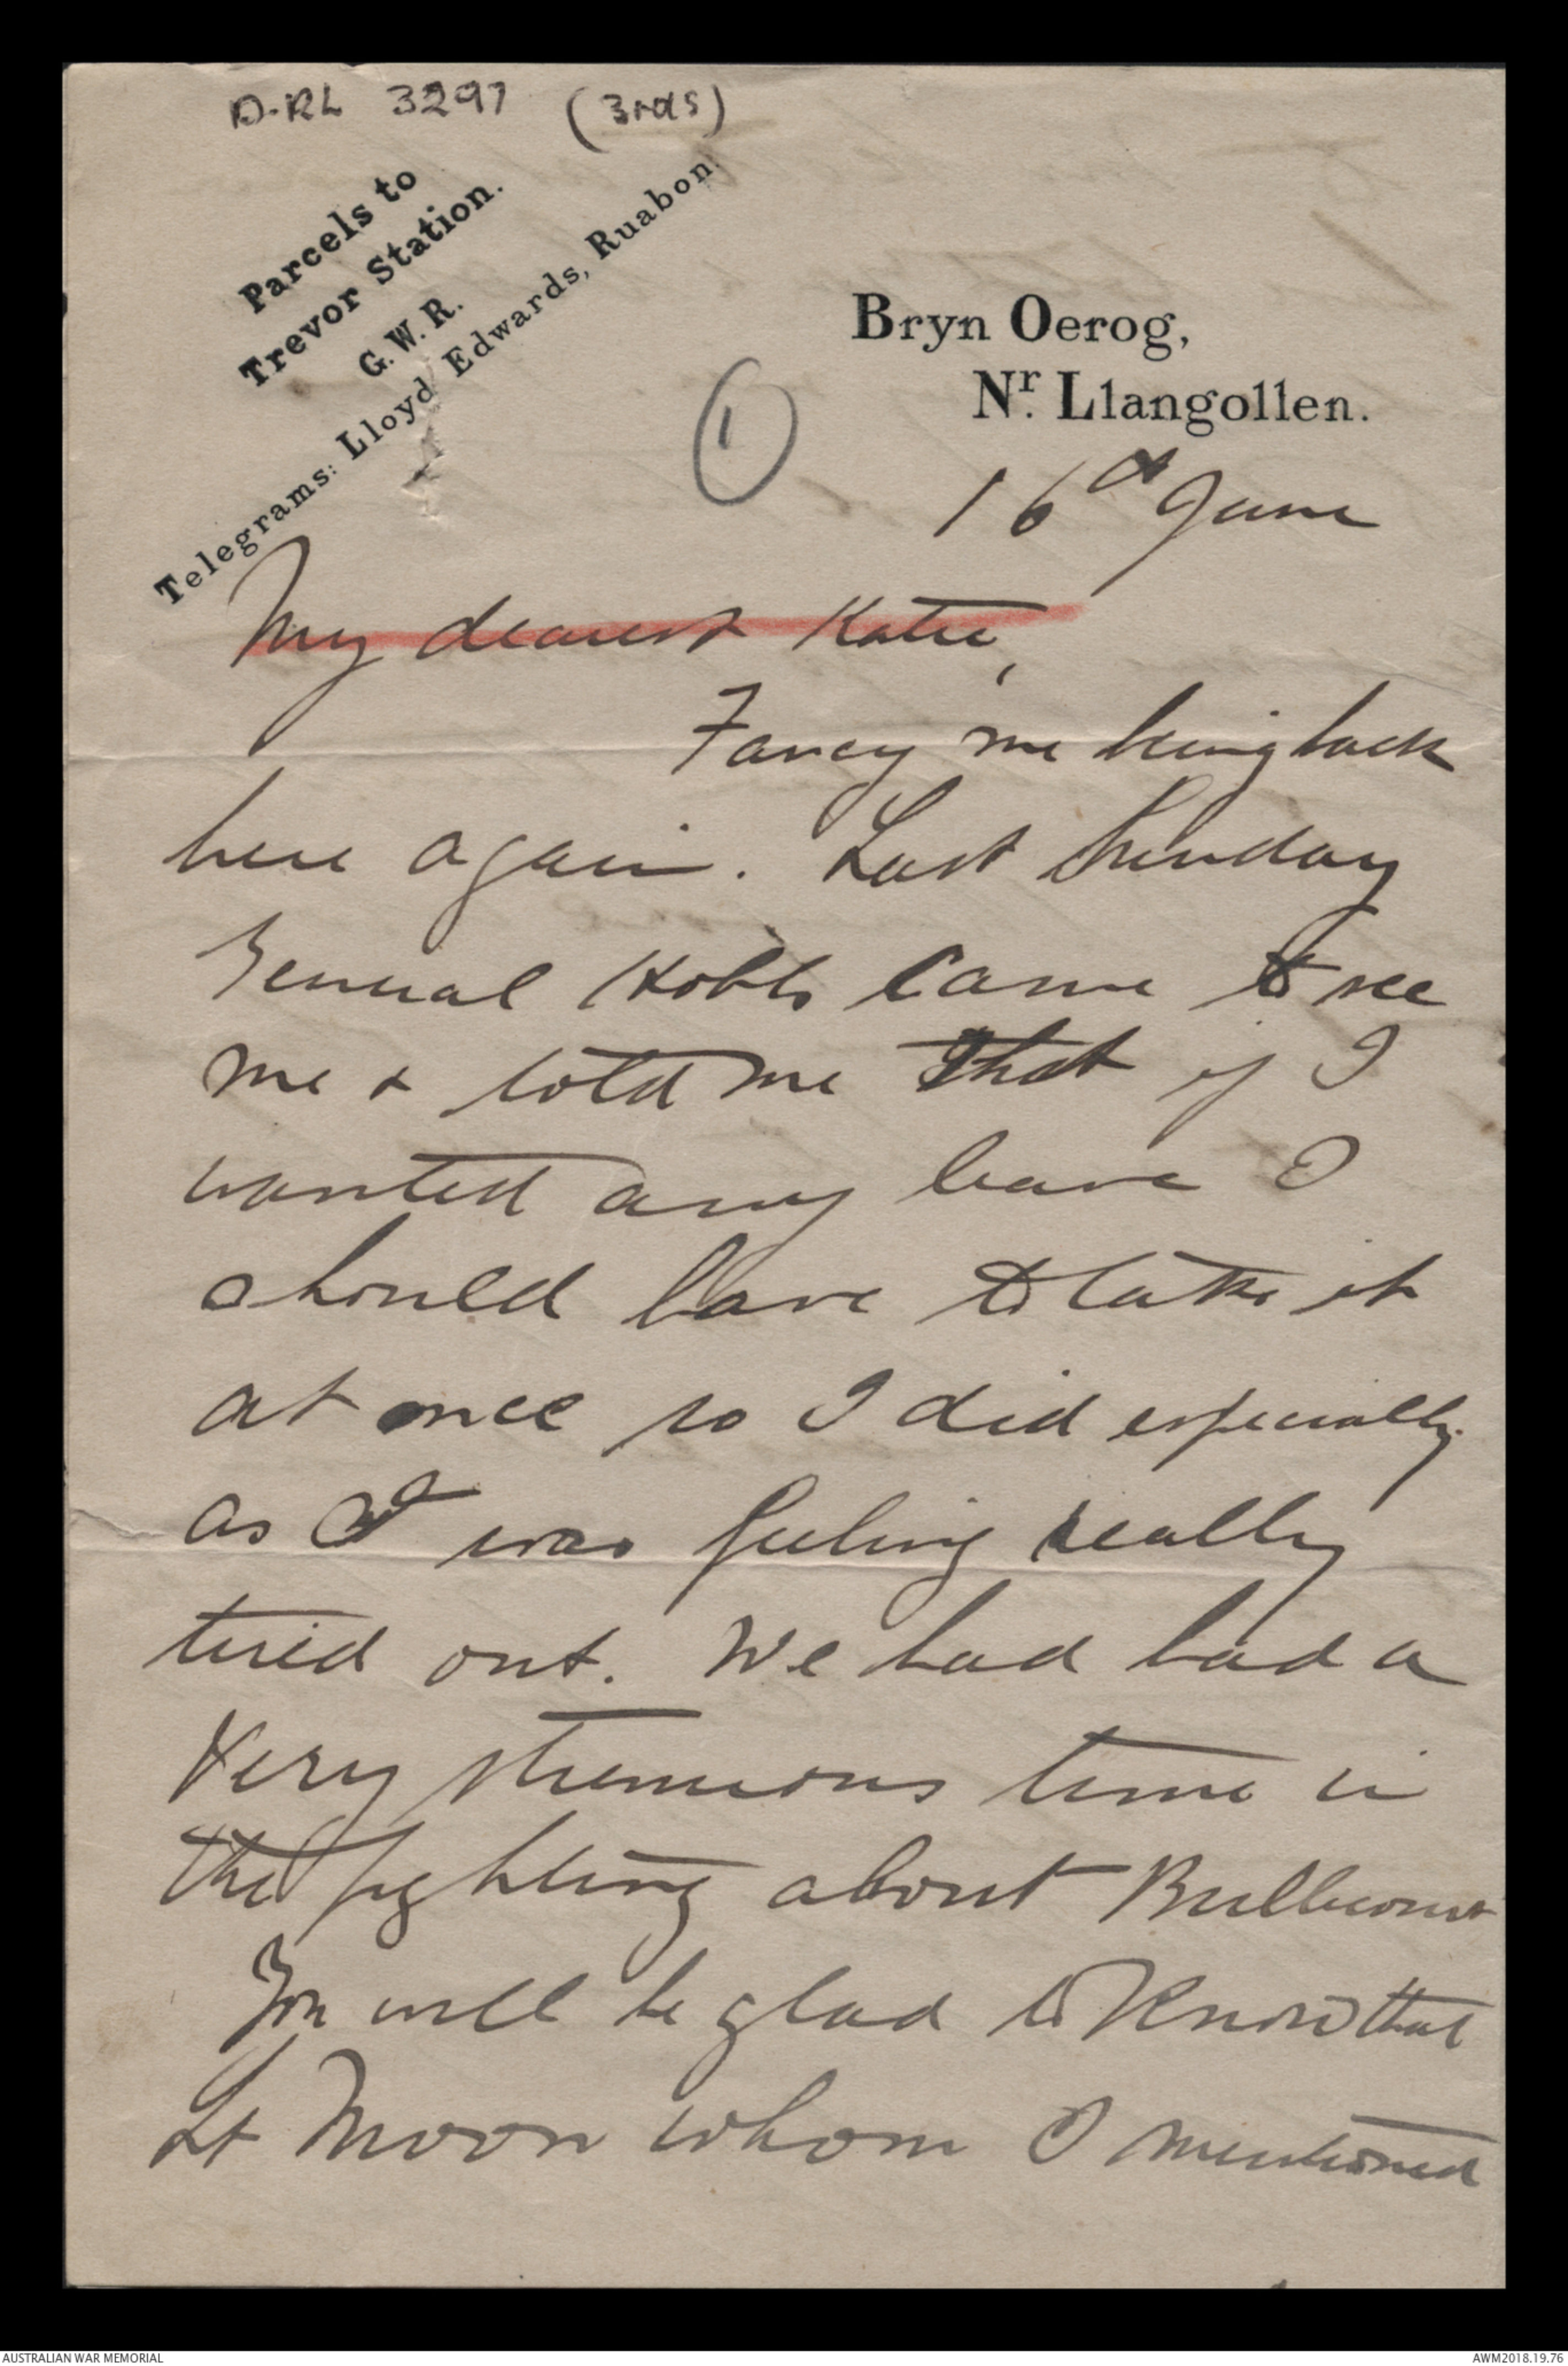 D-RL 3297 (3rds)
Parcels to
Trevor Station.
G.W.R.
Telegrams: Lloyd Edwards, Ruabon.
Bryn Oerog,
Nr. Llangollen.
1
16th June
My dearest Katie,
Fancy me being back
here again. Last Sunday
General Hobbs came to see
me & told me that if I
wanted any leave I
should have to take it
at once so I did especially
as I was feeling really
tired out. We had had a
very strenuous time in
the fighting about Bullecourt
You will be glad to know that
Lt Moon whom I mentioned
AUSTRALIAN WAR MEMORIAL
AWM2018.19.76